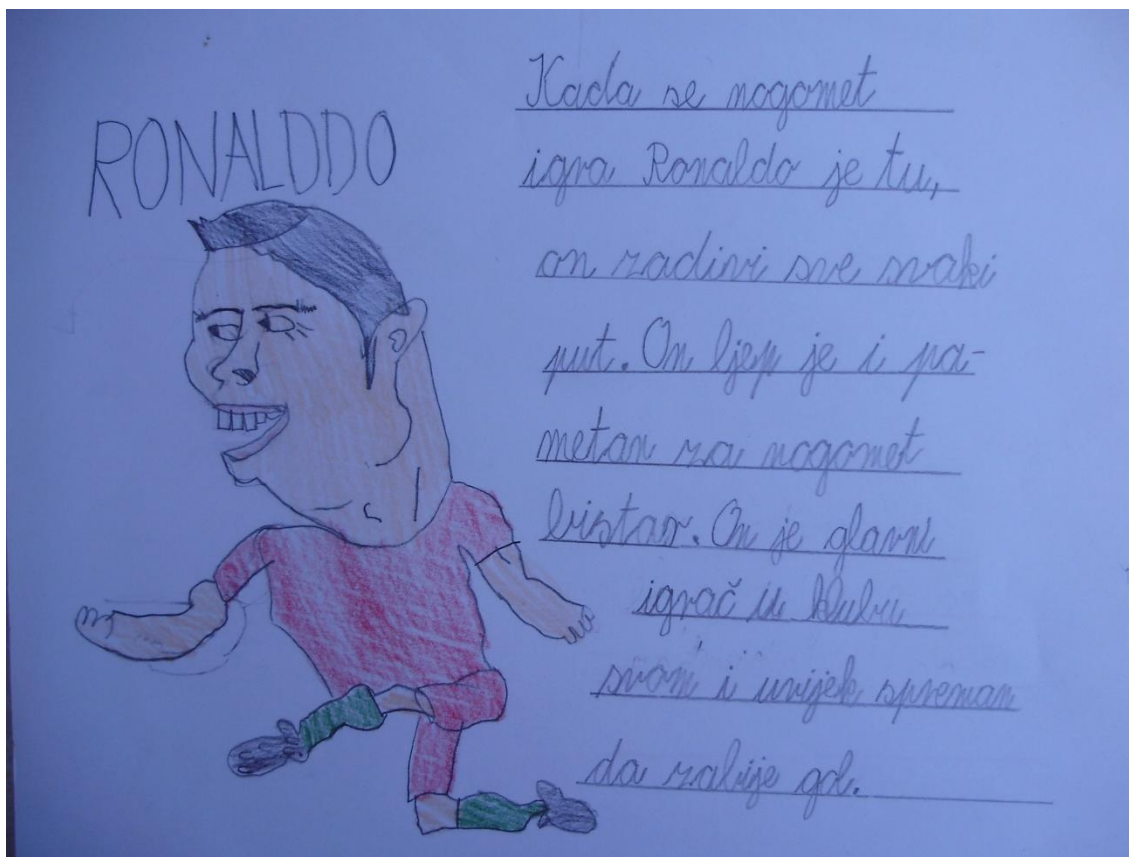 RONALDDO
Kada se nogomet
igra Ronaldo je tu,
on zadivi sve svaki
put. On ljep je i pa-
metan za nogomet
bistar. On je glavni
igrač u klubu
svom i uvijek spreman
da zabije gol.